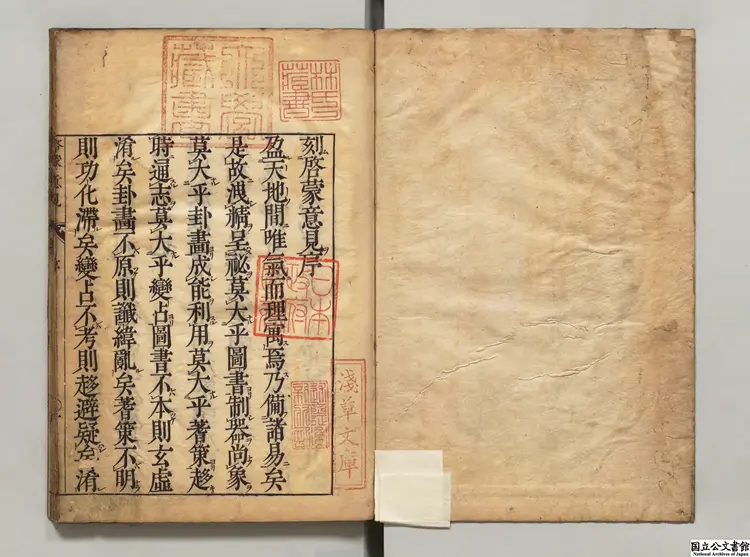 林氏
藏書
日本
政府
圖書
淺草文庫
刻啓蒙意見序
盈天地間唯氣而理寓焉乃備諸易矣
是故洩精呈祕莫大乎圖書制器尚象
莫大乎卦畫成能利用莫大乎蓍策趍
時通志莫大乎變占圖書不本則玄虛
淆矣卦畫不原則讖緯亂矣蓍策不明
則功化滯矣變占不考則趍避疑矣淆
国立公文書館
National Archives of Japan